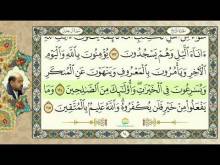 ءَانَآءَ ٱلَّيۡلِ وَهُمۡ يَسۡجُدُونَ ١١٣ يُؤۡمِنُونَ بِٱللَّهِ وَٱلۡيَوۡمِ
ٱلۡأٓخِرِ وَيَأۡمُرُونَ بِٱلۡمَعۡرُوفِ وَيَنۡهَوۡنَ عَنِ ٱلۡمُنكَرِ
وَيُسَٰرِعُونَ فِي ٱلۡخَيۡرَٰتِۖ وَأُوْلَٰٓئِكَ مِنَ ٱلصَّٰلِحِينَ ١١٤ وَمَا
يَفۡعَلُواْ مِنۡ خَيۡرٖ فَلَن يُكۡفَرُوهُۗ وَٱللَّهُ عَلِيمُۢ بِٱلۡمُتَّقِينَ